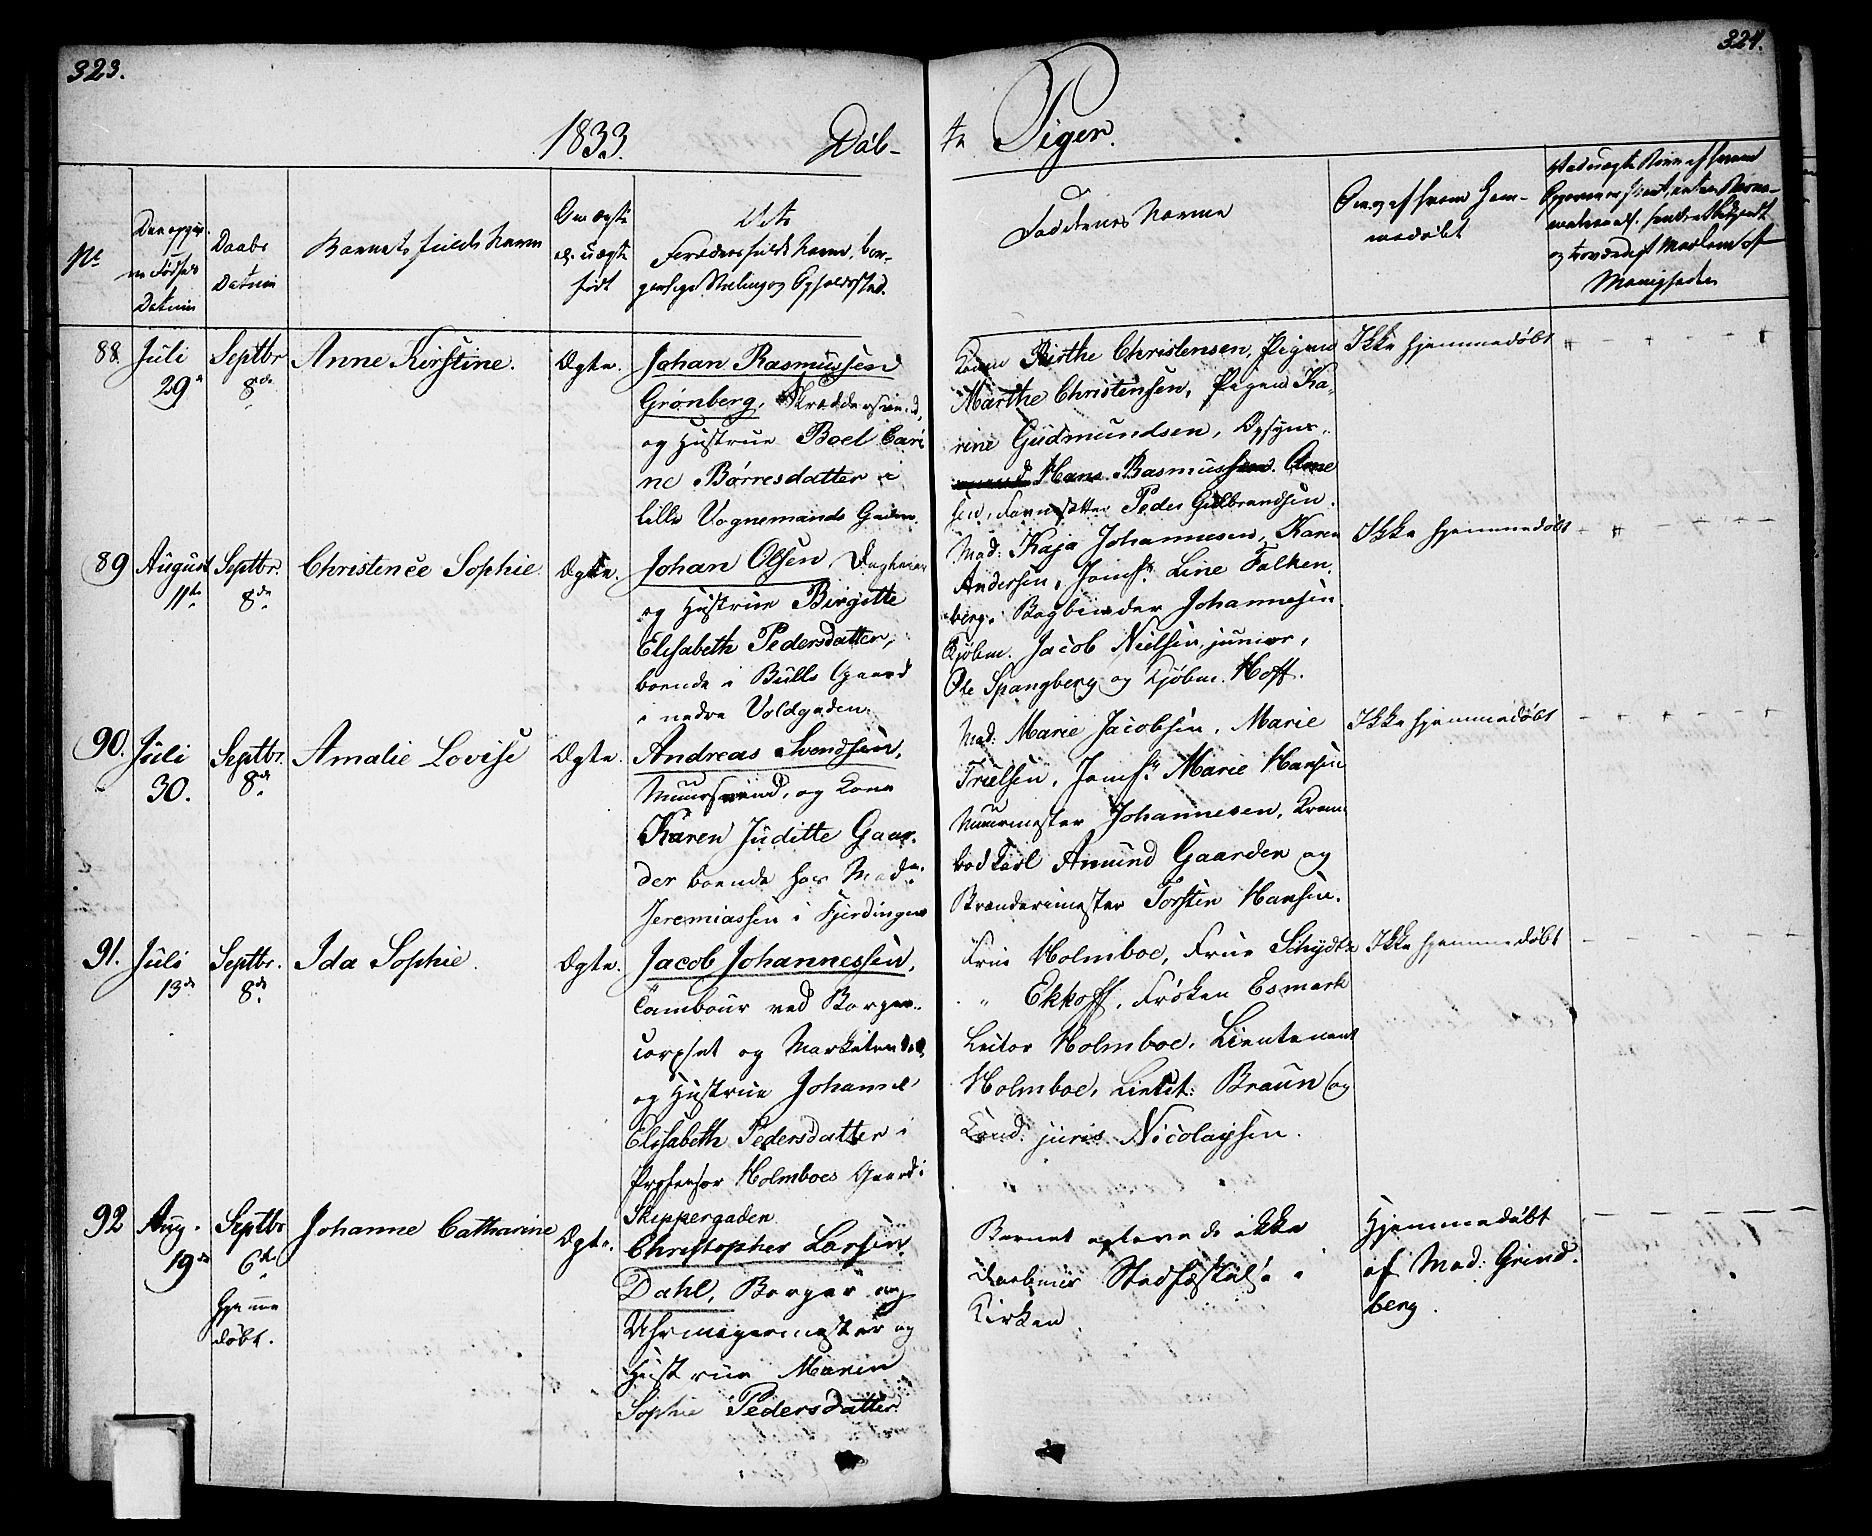 323.
324.
1833.
Døb-
te Piger.
No
Den opgiv-
ne Fødsels
Datum
Daabs
Datum
Barnets fulde Navn
Om ægte
el. uægte
født
Dets
Forældres fulde Navn, bor-
gerlige Stilling og Opholdssted.
Faddernes Navne
Om og af hvem hjem-
medøbt
88.
Juli
29de
Septbr
8de
Anne Kirstine.
Ægte.
Johan Rasmussen
Grønberg, Skræddersvend,
og Hustrue Boel Cari
ne Børresdatter i
lille Vognmands Gaden.
Konen Birthe Christensen, Pigen
Marthe Christensen, Pigen Ka-
rine Gudmundsen, Opsyns-
mand Hans Rasmussen. Arne
sen, Peder Gulbrandsen.
Ikke hjemmedøbt
89
August
11te
Septbr.
8de
Christence Sophie.
Ægte.
Johan Olsen, Dagleier
og Hustrue Birgitte
Elisabeth Pedersdatter,
boende i Bulls Gaard
i nedre Voldgaden.
Mad: Kaja Johannesen, Karen
Andersen, Jomfr. Line Falken
berg. Bogbinder Johannesen
Kjøbm. Jacob Nielsen junior,
Ole Spangberg og Kjøbm. Hoff.
Ikke hjemmedøbt
90.
Juli
30.
Septbr.
8de
Amalie Lovise
Ægte.
Andreas Svendsen,
Muursvend, og Kone
Karen Juditte Gaar-
der boende hos Mad:
Jeremiassen i Fjerdingen
Mad. Marie Jacobsen, Marie
Truelsen, Jomfr. Marie Hansen
Muurmester Johannesen, Kram
bodkarl Amund Gaarden og
Brænderimester Torsten Hansen.
Ikke hjemmedøbt
91.
Juli
13de
Septbr.
8de
Ida Sophie.
Ægte.
Jacob Johannessen,
Tambour ved Borger-
corpset og Marketender,
og Hustrue Johanne
Elisabeth Pedersdatter i
Professor Holmboes Gaard i
Skippergaden
Frue Holmboe, Frue Schydtz
" Ekhoff, Frøken Esmark
Lector Holmboe, Lieutenant
Holmboe, Lieut: Braun og
Cand. juris Nicolaysen.
Ikke hjemmedøbt
92
Aug.
19de
Septbr
6te
Hjemme
døbt.
Johanne Catharine
Ægte.
Christopher Larsen
Dahl, Borger og
Uhrmagermester og
Hustrue Maren
Sophie Pedersdatter
Barnet oplevede ikke
Daabens Stadfæstelse i
Kirken
Hjemmedøbt
af Mad: Grind
berg.